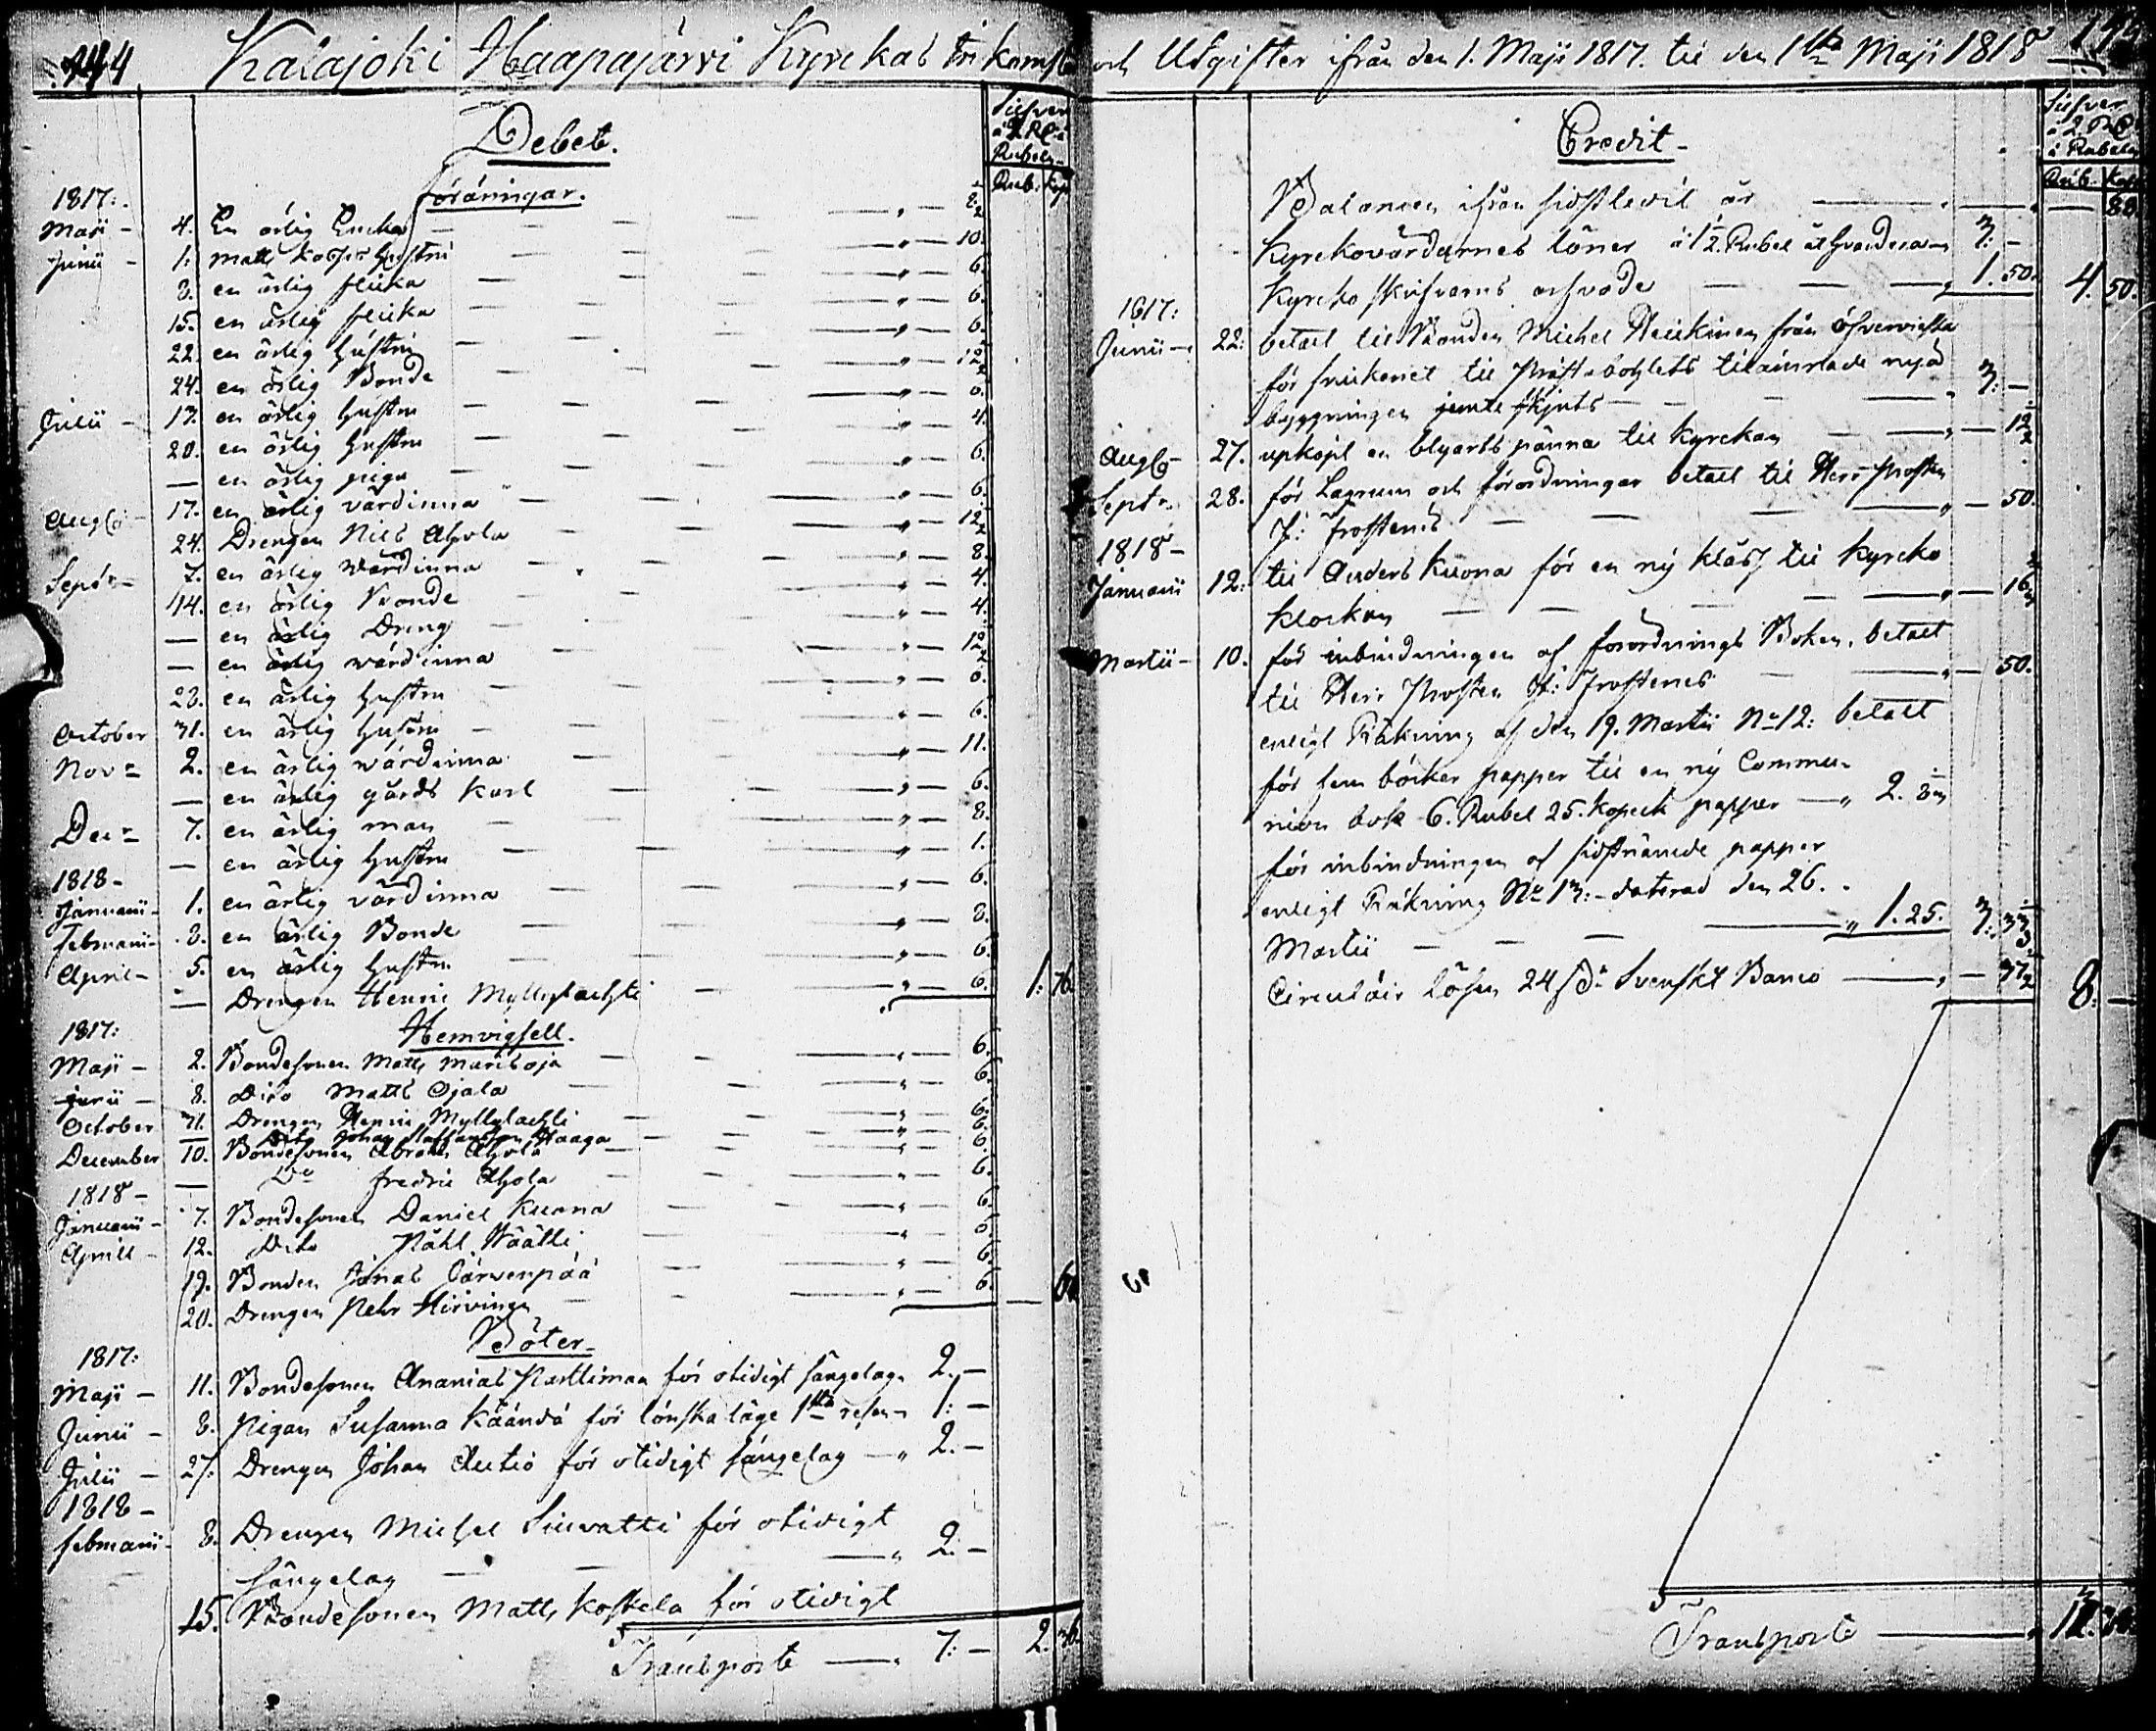 144 Kalajoki Haapajärvi Kyrckas Inkomster och Utgifter ifrån den 1. Maji 1817. til den 1sta Maji 1818
Debet.
Silfver
à 2 RC
Rubeln
Rub. Kop
Föräningar.
1817:
Maji - 4. En ärlig Encka - 2
Junii - 1. Matts hustru - 10.
8. en ärlig flicka - 6.
15. en ärlig flicka - 6.
22. en ärlig hustru - 6.
24. en ärlig Bonde - 12 1/2
Julii - 13. en ärlig hustru - 8.
20. en ärlig hustru - 4.
— en ärlig piga - 6.
Augti - 17. en ärlig värdinna - 6.
24. Drengen Nils Ahola - 12 1/2
Septr - 7. en ärlig wärdinna - 8.
14. en ärlig Bonde - 4.
— en ärlig Dreng - 4.
— en ärlig wärdinna - 12 1/2
28. en ärlig hustru - 8.
October 31. en ärlig hustru - 6.
Novr 2. en ärlig wärdinna - 11.
— en ärlig gårds karl - 6.
Decr 7. en ärlig man - 8.
— en ärlig hustru - 1.
1818 -
Januarii - 1. en ärlig värdinna - 6.
Februarii - 8. en ärlig Bonde - 8.
April - 5. en ärlig hustru - 6.
— Drengen Henric Myllylachti - 6. 1: 76
Hemvigsell.
1817:
Maji - 2. Bondesonen Matts - 6.
Junii - 8. Dito Matts Ojala - 6.
October 31. Drengen Henric Myllylachti - 6.
— Dito Johan Staffansson Haaga - 6.
December 10. Bondesonen Abrah. Ahola - 6.
— Do Fredric Ahola - 6.
1818 -
Januarii - 7. Bondesonen Daniel Kuona - 6.
Aprill - 12. Dito Påhl Määtti - 6.
19. Bonden Jonas Järvenpää - 6.
20. Drengen Pehr Hirvinen - 6. — 60
Böter
1817:
Maji - 11. Bondesonen Ananias Parttimaa för otidigt sängelag 2. —
Junii - 8. Pigan Susanna Käändä för lönskaläge 1sta resan 1: —
Julii - 27: Drengen Johan Autio för otidigt sängelag — 2. —
1818 -
Februarii - 8. Drengen Michel för otidigt
sängelag — 2. —
15. Bondesonen Matts Koskela för otidigt
Transporte — 7: — 2. 36.
Credit -
Silfver
à 2 RC
à Rubeln
Rub. Kop
Balancen ifrån sidstledit år — 88
Kyrckovärdarnes löner à 1 1/2 Rubel åt hvardera 3: —
Kyrcko skrifvarens arfvode — 1. 50. 4. 50.
1817:
Junii - 22: betalt till Bonden Michel Heickinen från Öfvervieska
för til Präst-bohlets nya
byggningen jemte skjuts — 3: —
Augti - 27. upköpt en blyerts pänna til kyrckan — 12 1/2
Septr 28. för Lagrum och förordningar betalt til Herr Prosten
J: Frosterus — 50.
1818 -
Januarii 12: til Anders Kuona för en ny kläpp til Kyrcko
klockan — 16 2/3
Martii - 10. för inbindningen af förordnings Boken, betalt
til Herr Prosten J: Frosterus — 50.
enligt Räkning af den 19. Martii No 12: betalt
för fem böcker papper til en ny Commu-
nion bok 6. Rubel 25. Kopeck papper — 2. 8
för inbindningen af sidstnämde papper
enligt Räkning No 13: - daterad den 26.
Martii — 1. 25. 3: 33
Circulair lösen 24 sd. Svenskt Banco — 37 1/2 8: —
Transporte —